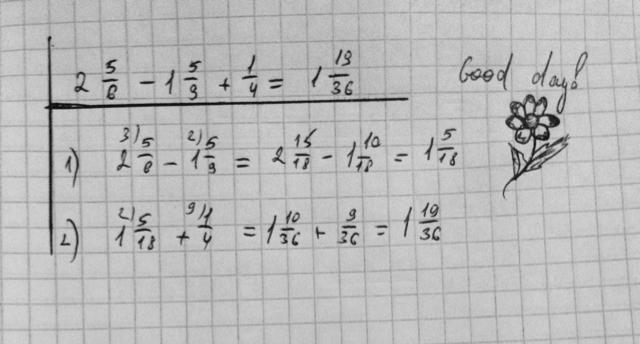 2 5/6 - 1 5/9 + 1/4 = 1 19/36
Good day!
1) 2 3) 5/6 - 1 2) 5/9 = 2 15/18 - 1 10/18 = 1 5/18
2) 1 2) 5/18 + 9) 1/4 = 1 10/36 + 9/36 = 1 19/36